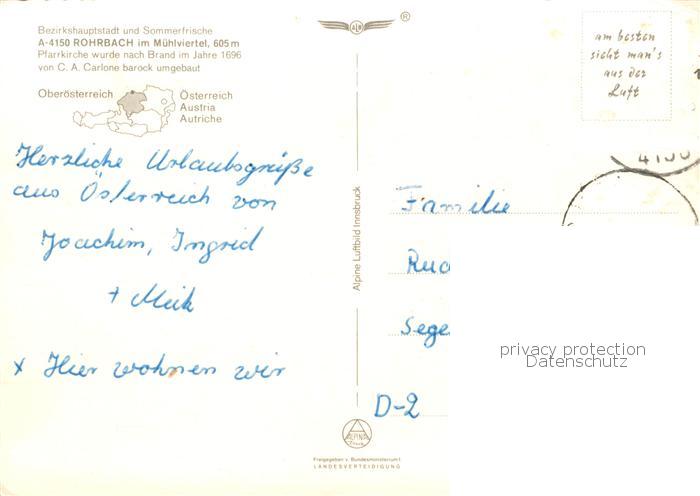 Bezirkshauptstadt und Sommerfrische
A-4150 ROHRBACH im Mühlviertel, 605 m
Pfarrkirche wurde nach Brand im Jahre 1696
von C. A. Carlone barock umgebaut
Oberösterreich
Österreich
Austria
Autriche
Herzliche Urlaubsgrüße
aus Österreich von
Joachim, Ingrid
+ Meik
x Hier wohnen wir
ALB
®
Alpine Luftbild Innsbruck
am besten
sieht man's
aus der
Luft
4150
Familie
Rud
Sege
D-2
privacy protection
Datenschutz
ALPINA
Freigegeben v. Bundesministerium f.
LANDESVERTEIDIGUNG